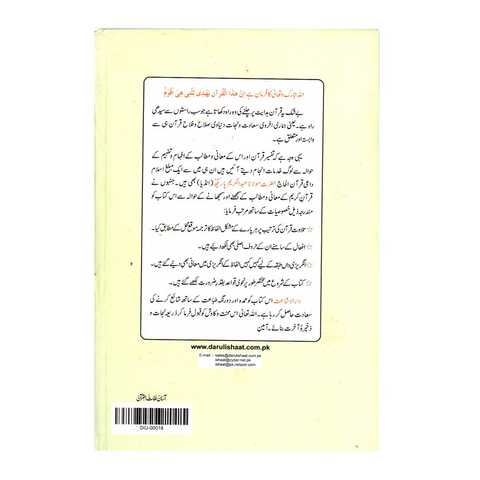 اللہ تبارک و تعالیٰ کا فرمان ہے اِنَّ هٰذَا الْقُرْاٰنَ يَهْدِىْ لِلَّتِىْ هِىَ اَقْوَمُ
بے شک یہ قرآن ہدایت پر چلنے کی وہ راہ دکھاتا ہے جو سب راستوں سے سیدھی
راہ ہے۔ یعنی ہماری اخروی سعادت و نجات دنیاوی صلاح و فلاح قرآن ہی سے
وابستہ اور متعلق ہے۔
یہی وجہ ہے کہ تفسیر قرآن اور اس کے معانی و مطالب کے افہام و تفہیم کے
حوالہ سے لوگ خدمات انجام دیتے آئے ہیں ان ہی میں سے ایک مبلغ اسلام
داعی قرآن الحاج حضرت مولانا عبدالکریم پاریکھ (انڈیا) بھی ہیں۔ جنہوں نے
قرآن کریم کے معانی و مطالب کے سمجھنے اور سمجھانے کے حوالہ سے اس کتاب کو
مندرجہ ذیل خصوصیات کے ساتھ مرتب فرمایا:
☆ تلاوت قرآن کی ترتیب پر ہر پارے کے مشکل الفاظ کا ترجمہ موقع محل کے مطابق کیا۔
☆ افعال کے سامنے ان کے حروف اصلی بھی لکھ دیئے ہیں۔
☆ انگریزی داں طبقہ کے لیے کہیں کہیں الفاظ کے انگریزی میں معانی بھی دیئے گئے ہیں۔
☆ کتاب کے شروع میں مختصر طور پر نحوی قواعد بقدر ضرورت لکھے گئے ہیں۔
دارالاشاعت اس کتاب کو عمدہ اور دو رنگہ طباعت کے ساتھ شائع کرنے کی
سعادت حاصل کر رہا ہے۔ اللہ تعالیٰ اس محنت و کاوش کو قبول فرما کر ذریعہ نجات و
ذخیرۂ آخرت بنائے۔ آمین
www.darulishaat.com.pk
E-mail : sales@darulishaat.com.pk
ishaat@cyber.net.pk
ishaat@pk.netsolir.com
آسان لغات القرآن
DIU-00018